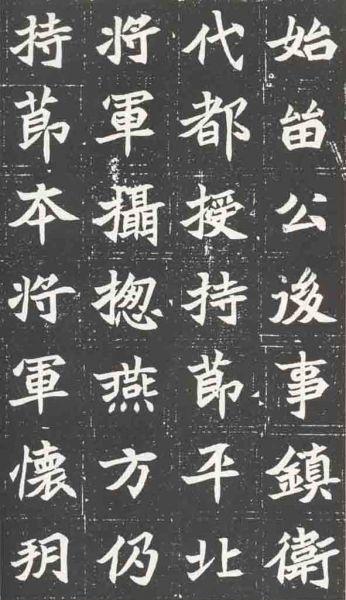 始㽞公後事鎮衛
代都授持莭平北
将軍攝揔燕方仍
持莭本将軍懷朔